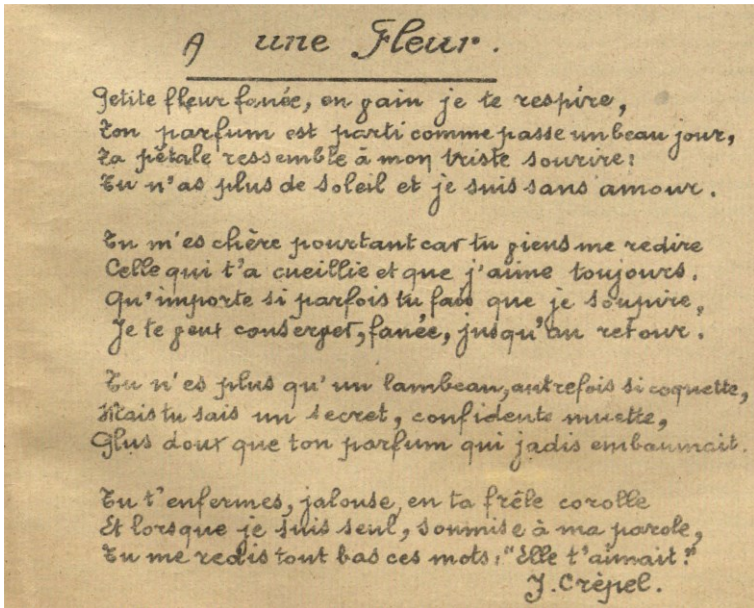 A une Fleur.
Petite fleur fanée, en vain je te respire,
Ton parfum est parti comme passe un beau jour,
Ta pétale ressemble à mon triste sourire:
Tu n'as plus de soleil et je suis sans amour.
Tu m'es chère pourtant car tu viens me redire
Celle qui t'a cueillie et que j'aime toujours.
Qu'importe si parfois tu fais que je soupire,
Je te veux conserver, fanée, jusqu'au retour.
Tu n'es plus qu'un lambeau, autrefois si coquette,
Mais tu sais un secret, confidente muette,
Plus doux que ton parfum qui jadis embaumait.
Tu t'enfermes, jalouse, en ta frêle corolle
Et lorsque je suis seul, soumise à ma parole,
Tu me redis tout bas ces mots: "Elle t'aimait!"
J. Crépel.